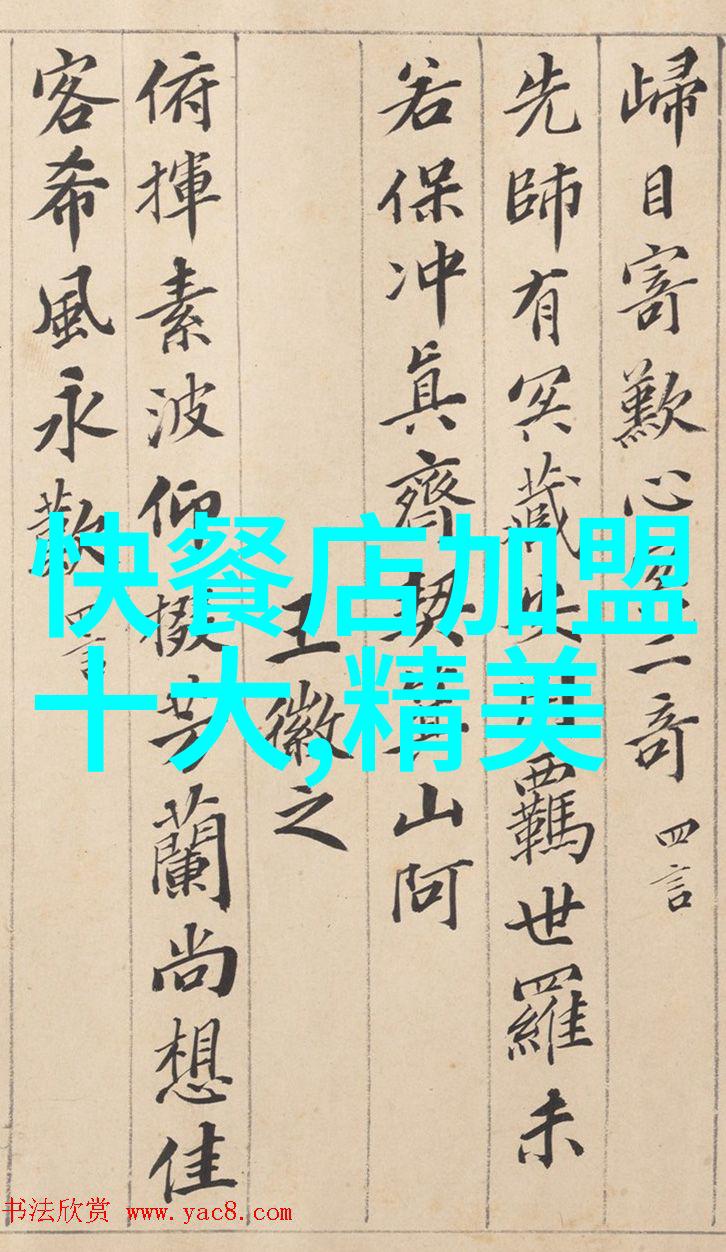 歸目寄歎心二奇 四言
先師有冥藏安用羈世羅未
若保冲眞齊契箕山阿
王徽之
俯揮素波仰掇芳蘭尚想佳
客希風永歎 四言
快餐店加盟
十大,精美
书法欣赏 www.yac8.com